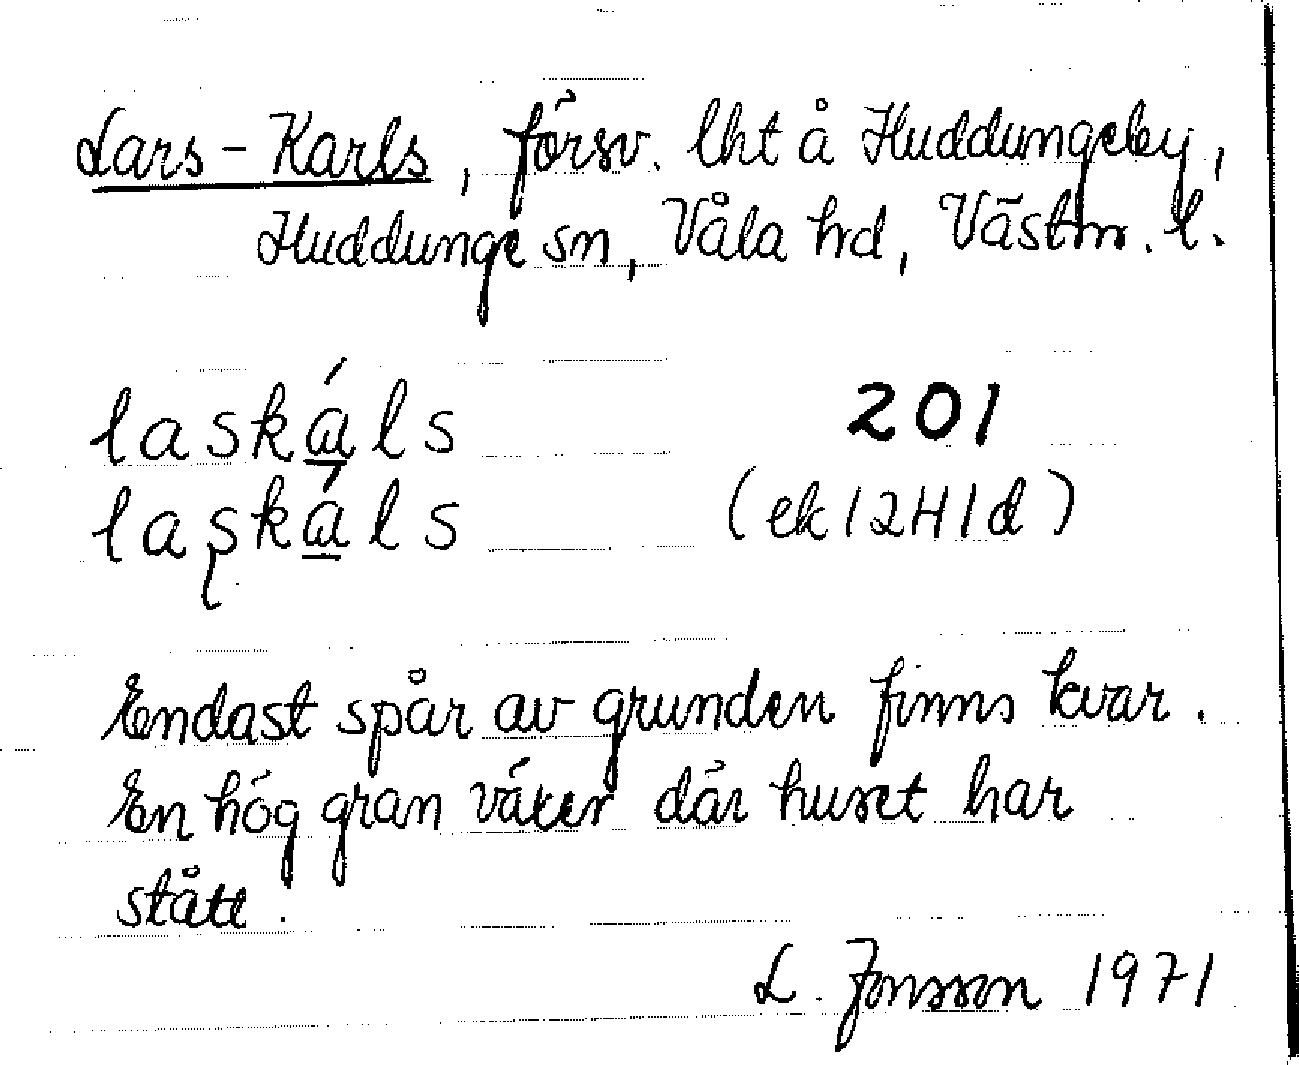 Lars-Karls, försv. lht å Huddungeby,
Huddunge sn, Våla hd, Västm. l.
laská̱ls 201
laʂká̱ls (ek 12H1d)
Endast spår av grunden finns kvar.
En hög gran växer där huset har
stått.
L. Jonsson 1971